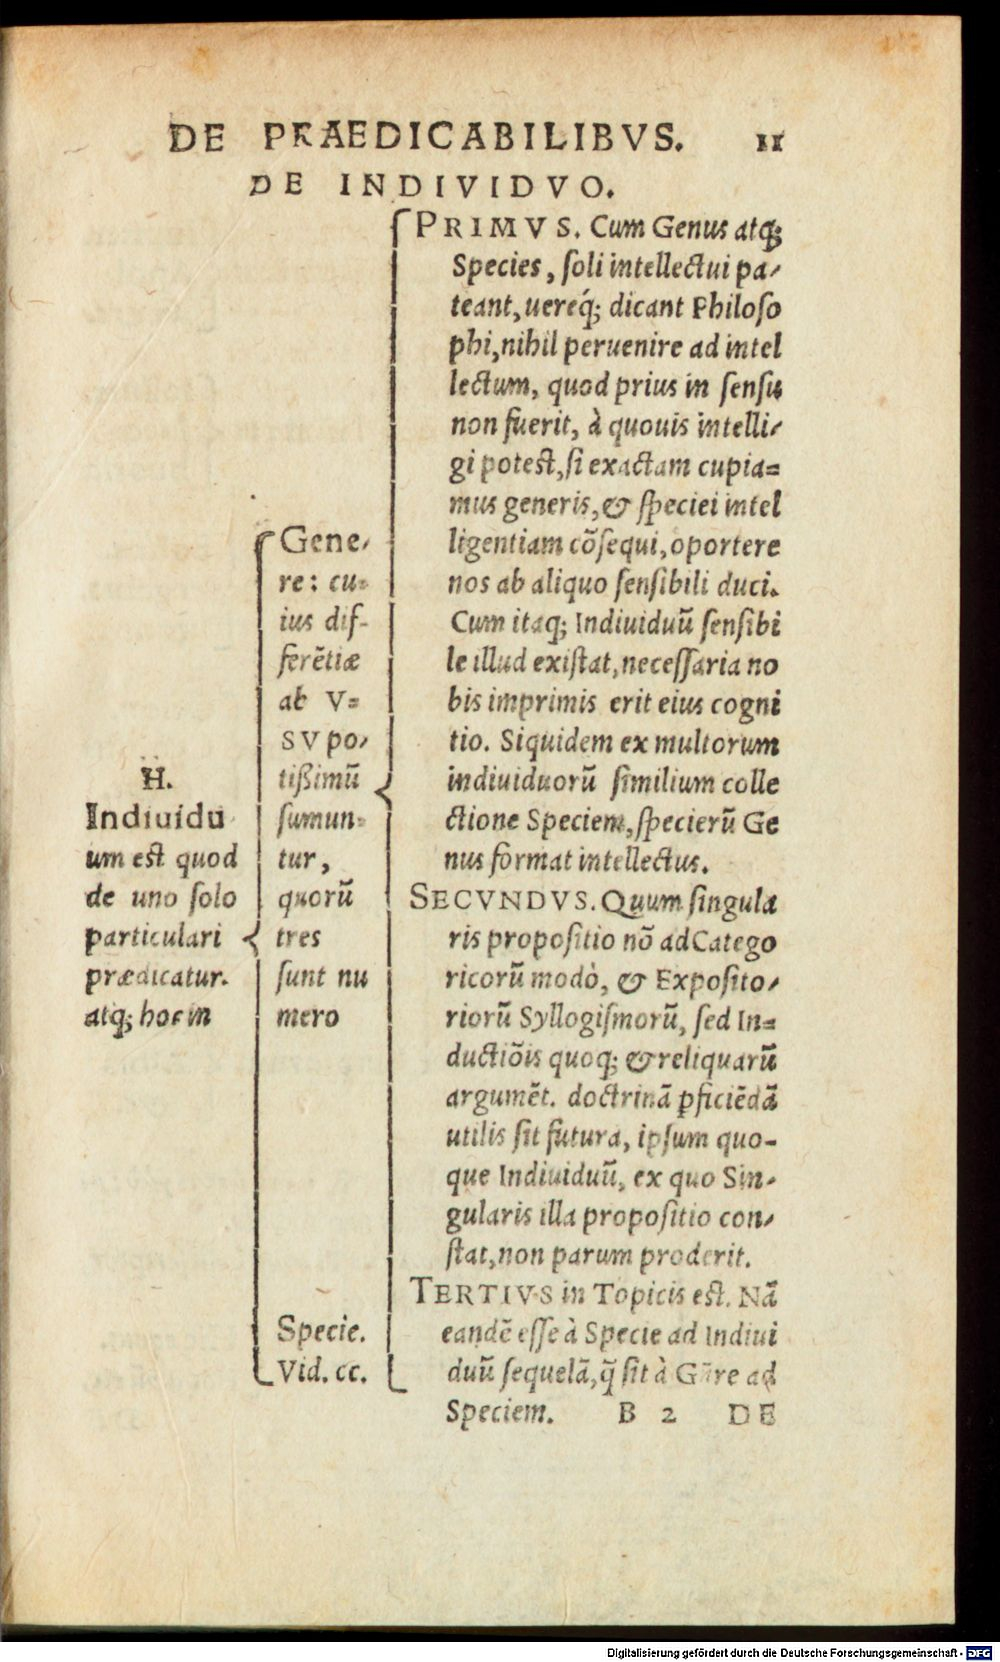 DE PRAEDICABILIBVS. 11
DE INDIVIDVO.
H.
Indiuidu
um est quod
de uno solo
particulari
prædicatur.
atq; hoc in
Gene-
re: cu-
ius dif-
ferẽtiæ
ab V-
SV po-
tißimũ
sumun-
tur,
quorũ
tres
sunt nu
mero
Specie.
Vid. cc.
PRIMVS. Cum Genus atq;
Species, soli intellectui pa-
teant, uereq́; dicant Philoso
phi, nihil peruenire ad intel
lectum, quod prius in sensu
non fuerit, à quouis intelli-
gi potest, si exactam cupia-
mus generis, & speciei intel
ligentiam cõsequi, oportere
nos ab aliquo sensibili duci.
Cum itaq; Indiuiduũ sensibi
le illud existat, necessaria no
bis imprimis erit eius cogni
tio. Siquidem ex multorum
indiuiduorũ similium colle
ctione Speciem, specierũ Ge
nus format intellectus.
SECVNDVS. Quum singula
ris propositio nõ ad Catego
ricorũ modò, & Exposito-
riorũ Syllogismorũ, sed In-
ductiõis quoq; & reliquarũ
argumẽt. doctrinã ꝑficiẽdã
utilis sit futura, ipsum quo-
que Indiuiduũ, ex quo Sin-
gularis illa propositio con-
stat, non parum proderit.
TERTIVS in Topicis est. Nã
eandẽ esse à Specie ad Indiui
duũ sequelã, q̃ sit à Gñre ad
Speciem. B 2 DE
Digitalisierung gefördert durch die Deutsche Forschungsgemeinschaft - DFG